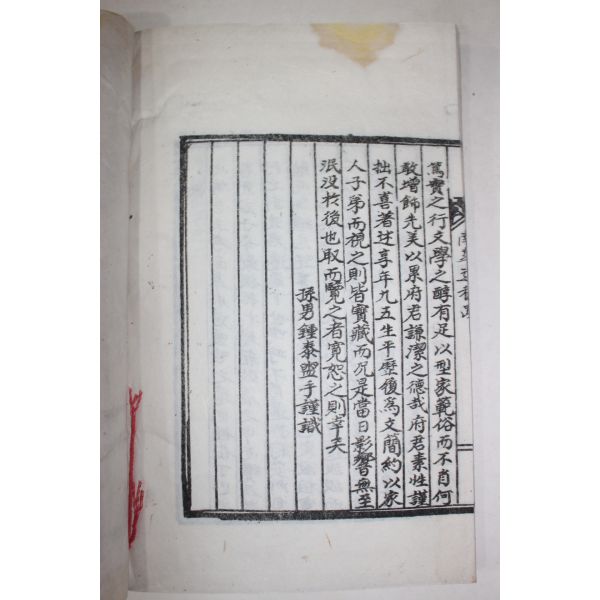 篤實之行文學之醇有足以型家範俗而不肖何
敢增飾先美以累府君謙潔之德哉府君素性謹
拙不喜著述享年九五生平歷復爲文簡約以家
人子弟而視之則皆寶藏而況是當日影響無至
泯没於後也取而覽之者寬恕之則幸矣
孫男鍾泰盥手謹識